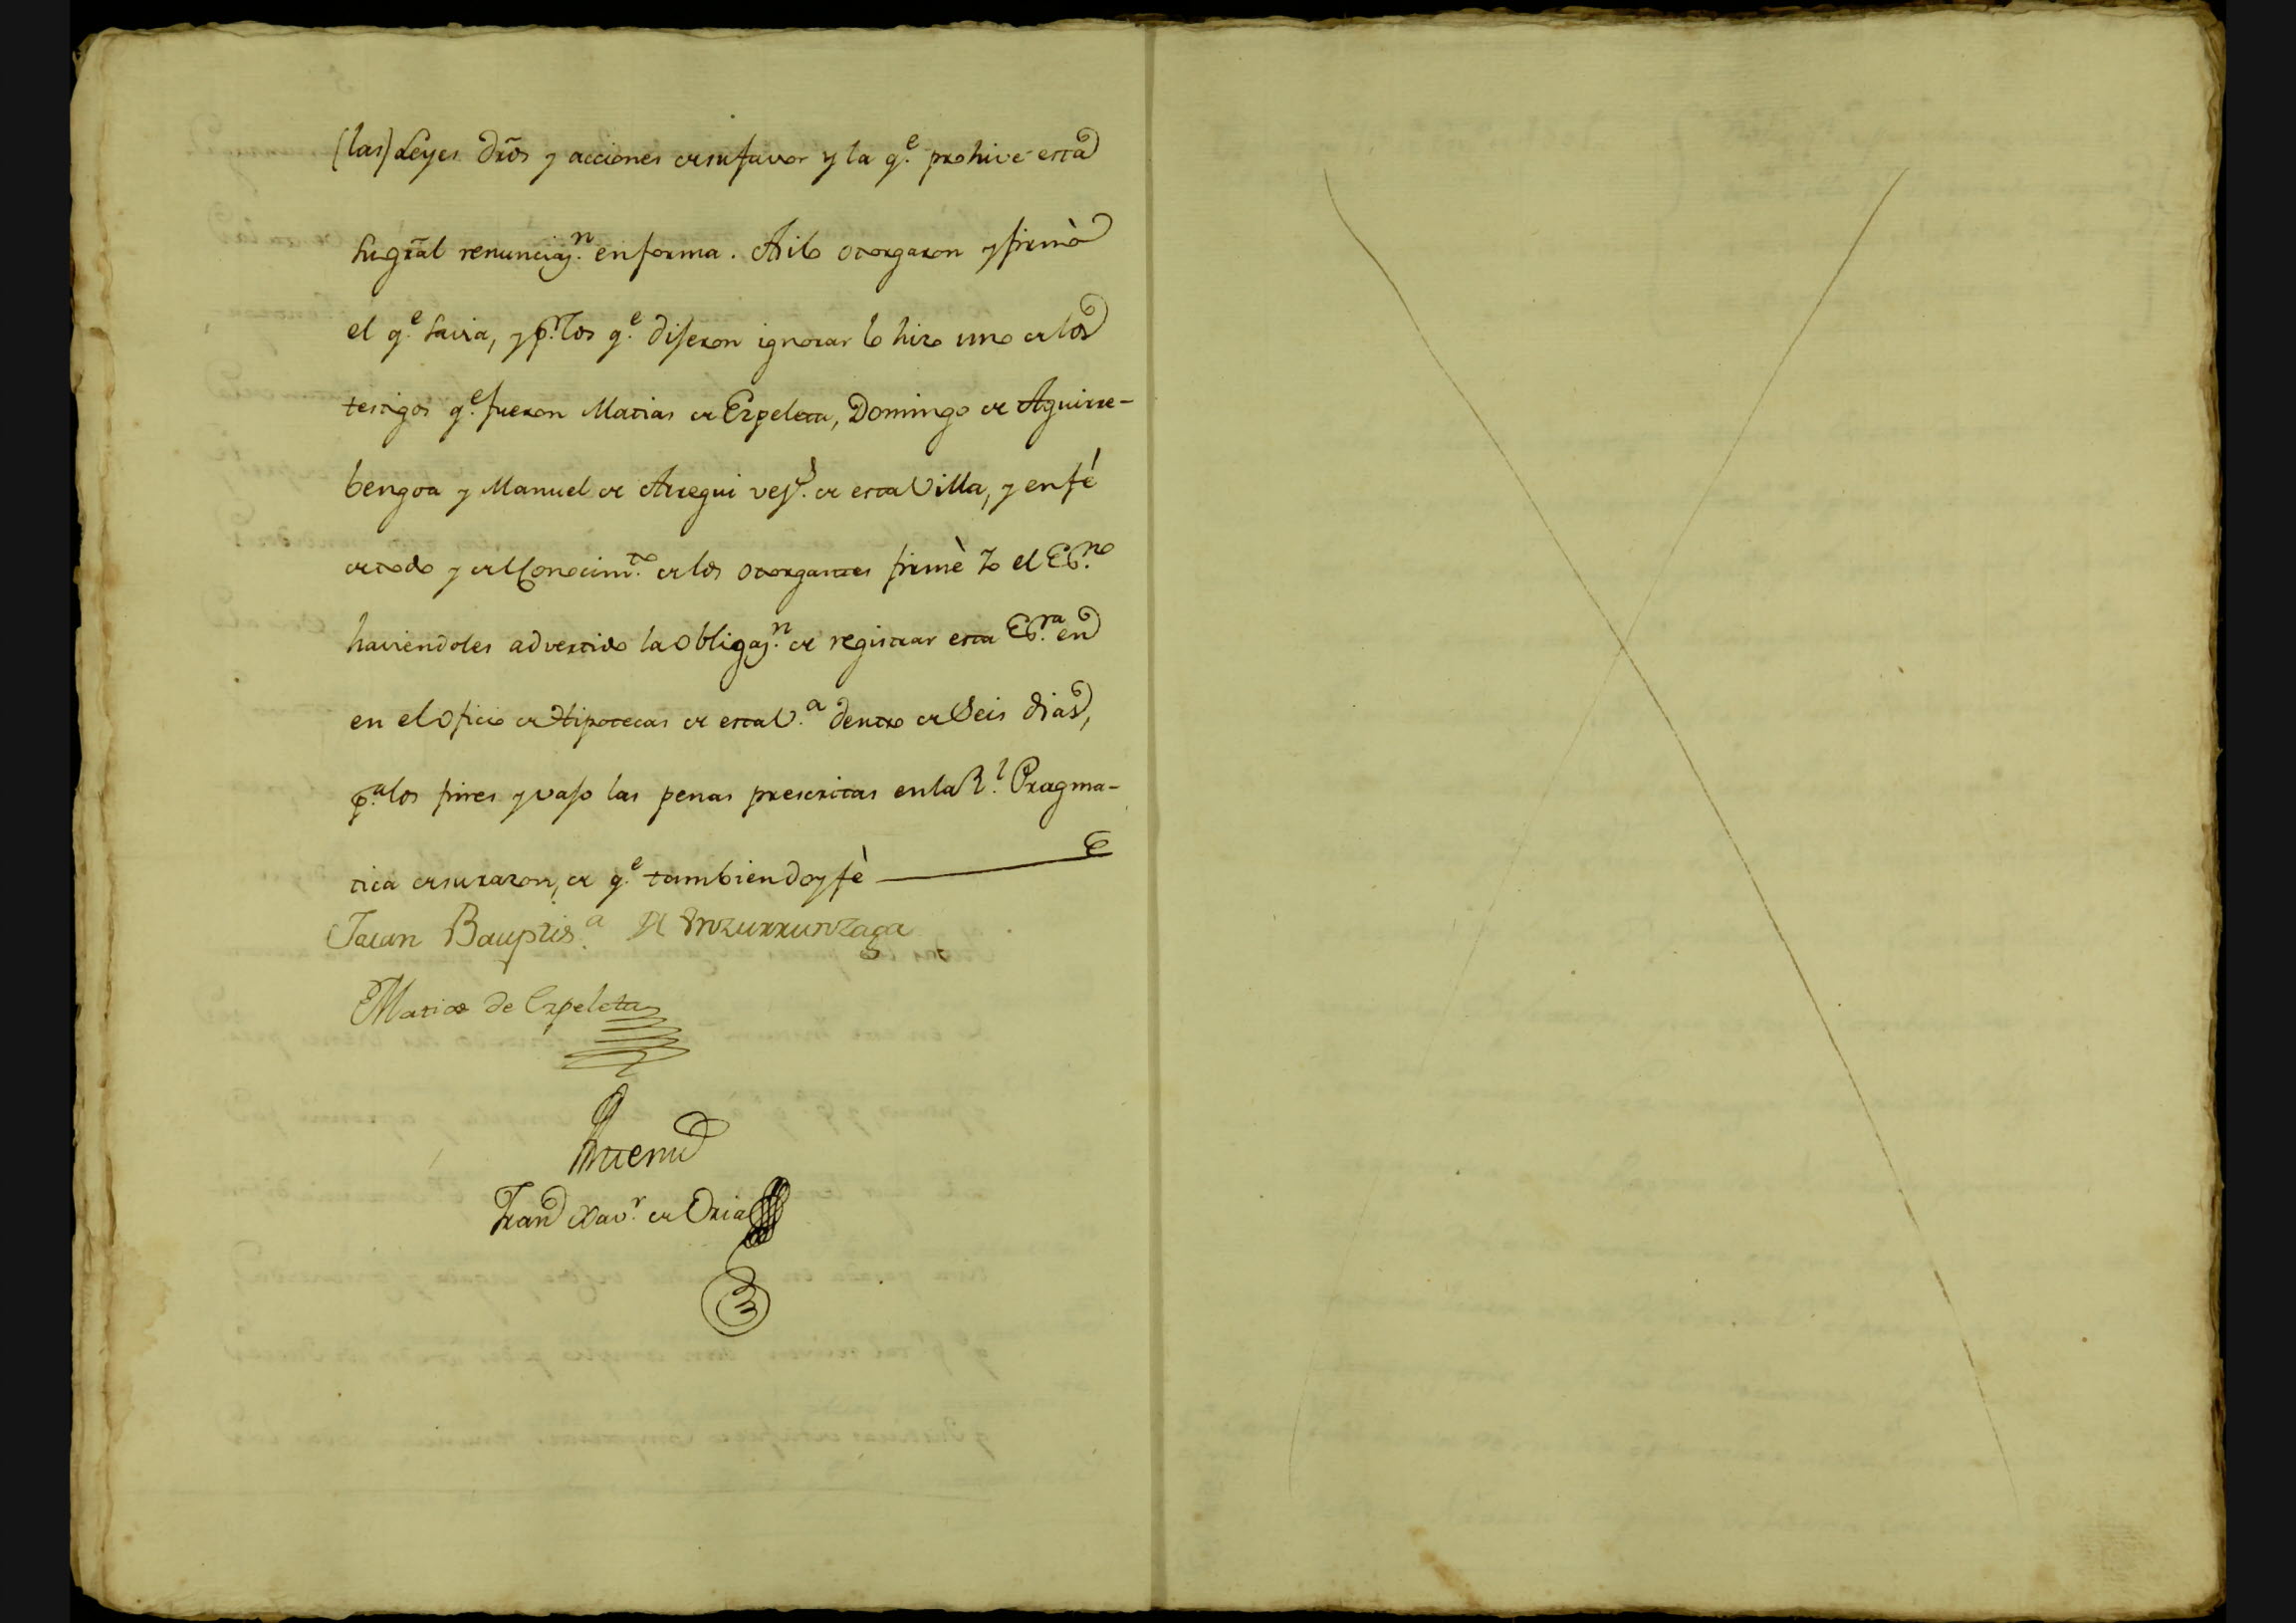 (las) Leyes dr̃os y acciones de su favor y la q.ᵉ prohive esta
su gr̃al renunciaz.ⁿ en forma. Asi lo otorgaron y firmò
el q.ᵉ savia, y p.ʳ los q.ᵉ dijeron ignorar lo hizo uno de los
testigos q.ᵉ fueron Matias de Ezpeleta, Domingo de Aguirre-
bengoa y Manuel de Arregui vez.ˢ de esta Villa, y en fé
de todo y del Conocim.ᵗᵒ de los otorgantes firmè Yo el Es.ⁿᵒ
haviendoles advertido la obligaz.ⁿ de registrar esta Es.ʳᵃ en
en el Oficio de Hipotecas de esta V.ᵃ dentro de Seis dias,
p.ᵃ los fines y vajo las penas prescritas en la R.ˡ Pragma-
tica de su razon, de q.ᵉ tambien doy fè
Juan Bauptis.ᵃ de Inzurrunzaga
Matias de Ezpeleta
Antemi
Fran Xav.ʳ de Oria